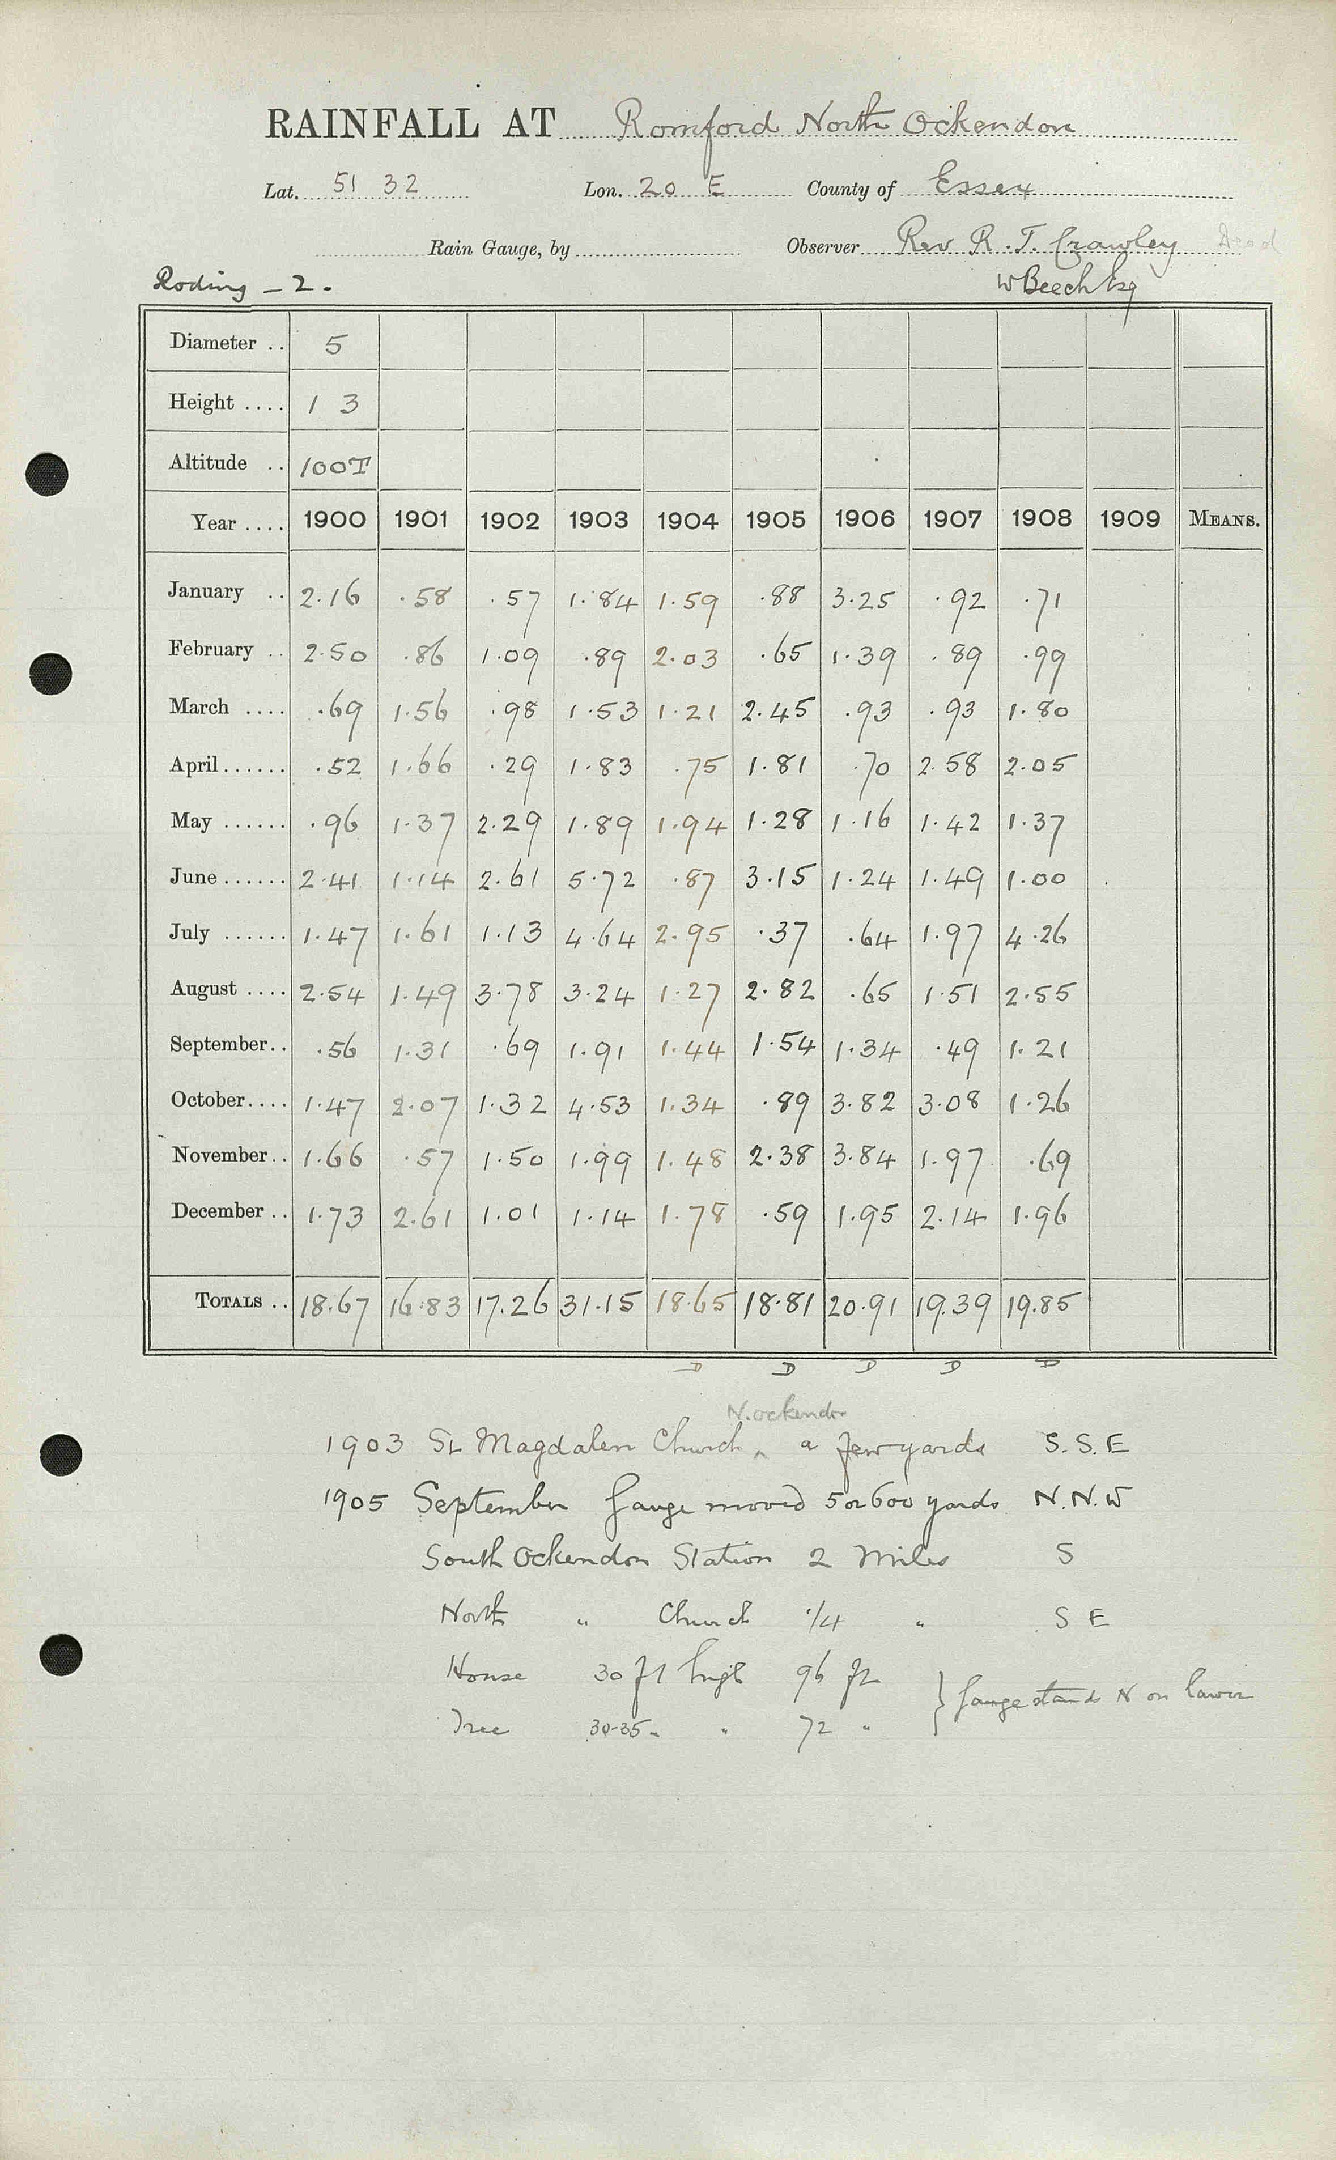 RAINFALL AT Romford North Ockendon
Lat. 51 32 Lon. 20 E County of Essex
Rain Gauge, by Observer Rev R. T. Crawley Dead
Roding - 2. W Beech Esq
Diameter .. 5
Height .... 1 3
Altitude .. 100T
Year .... 1900 1901 1902 1903 1904 1905 1906 1907 1908 1909 MEANS.
January .. 2.16 .58 .57 1.84 1.59 .88 3.25 .92 .71
February .. 2.50 .86 1.09 .89 2.03 .65 1.39 .89 .99
March .... .69 1.56 .98 1.53 1.21 2.45 .93 .93 1.80
April...... .52 1.66 .29 1.83 .75 1.81 .70 2.58 2.05
May ...... .96 1.37 2.29 1.89 1.94 1.28 1.16 1.42 1.37
June...... 2.41 1.14 2.61 5.72 .87 3.15 1.24 1.49 1.00
July ...... 1.47 1.61 1.13 4.64 2.95 .37 .64 1.97 4.26
August .... 2.54 1.49 3.78 3.24 1.27 2.82 .65 1.51 2.55
September.. .56 1.31 .69 1.91 1.44 1.54 1.34 .49 1.21
October.... 1.47 2.07 1.32 4.53 1.34 .89 3.82 3.08 1.26
November.. 1.66 .57 1.50 1.99 1.48 2.38 3.84 1.97 .69
December .. 1.73 2.61 1.01 1.14 1.78 .59 1.95 2.14 1.96
TOTALS .. 18.67 16.83 17.26 31.15 18.65 18.81 20.91 19.39 19.85
D D D D D
N. Ockendon
1903 St Magdalen Church ^ a few yards S. S. E
1905 September Gauge moved 5 or 600 yards N. N. W
South Ockendon Station 2 Miles S
North " Church 1/4 " S E
House 30 ft high 96 ft
} Gauge stands N on lawn
Tree 30-35 " " 72 "